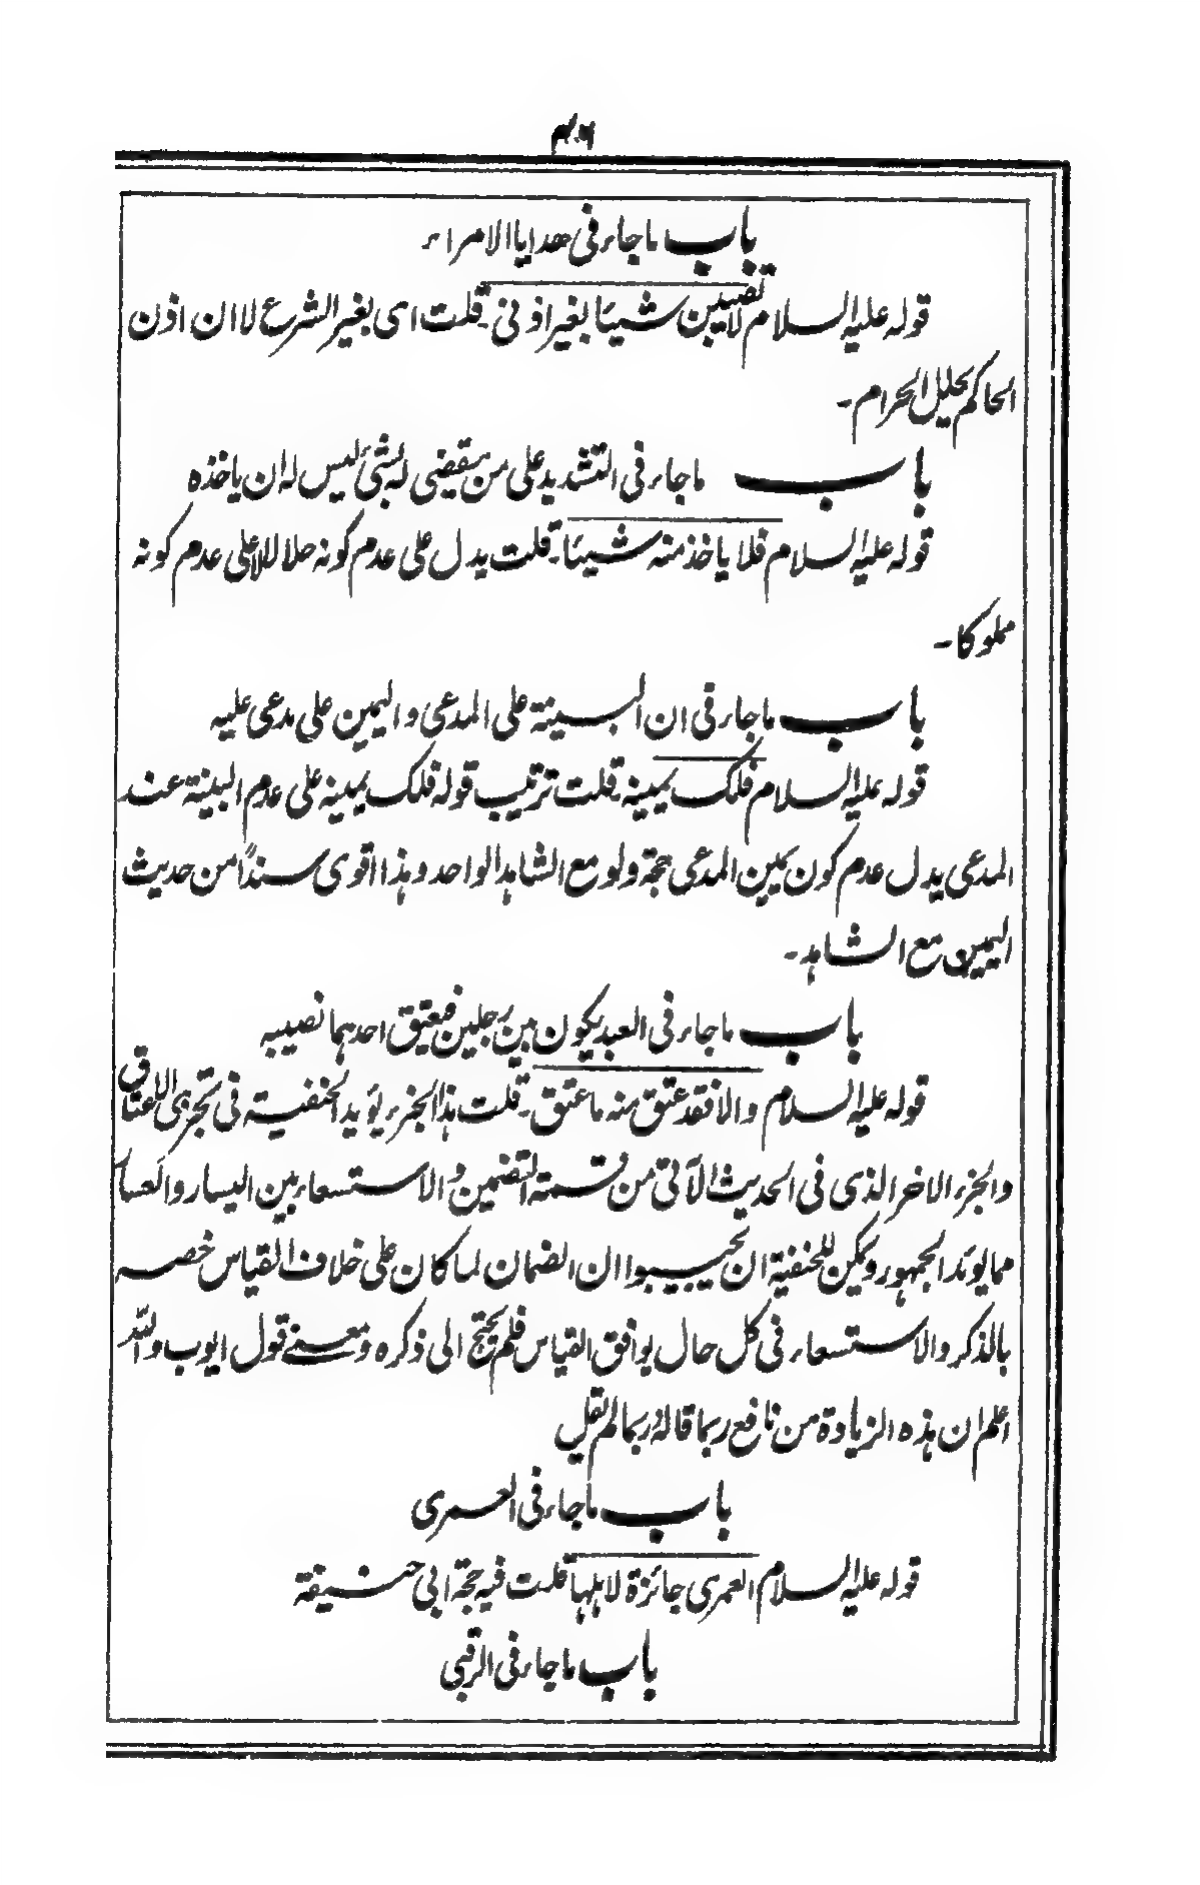 باب ماجاء فی هدایا الامراء
قوله علیه السلام لا تصیبن شیئا بغیر اذنی۔ قلت ای بغیر الشرع لا ان اذن
الحاکم یحلیل الحرام۔
باب ماجاء فی التشدید علی من یقضی له بشئ لیس له ان یاخذه
قوله علیه السلام فلا یاخذ منه شیئا۔ قلت یدل علی عدم کونه حلالا لا علی عدم کونه
مملوکا۔
باب ماجاء فی ان البینة علی المدعی والیمین علی مدعی علیه
قوله علیه السلام فلک یمینه۔ قلت ترتیب قوله فلک یمینه علی عدم البینة عند
المدعی یدل عدم کون یمین المدعی حجة ولو مع الشاهد الواحد وهذا اقوی سنداً من حدیث
الیمین مع الشاهد۔
باب ماجاء فی العبد یکون بین رجلین فیعتق احدهما نصیبه
قوله علیه السلام والا فقد عتق منه ما عتق۔ قلت هذا الجزء یؤید الحنفیة فی تجزی الاعتاق
والجزء الاخر الذی فی الحدیث الآتی من قسمة التضمین والاستسعاء بین الیسار والعسار
مما یوئد الجمهور ویمکن للحنفیة ان یجیبوا ان الضمان لما کان علی خلاف القیاس خصه
بالذکر والاستسعاء فی کل حال یوافق القیاس فلم یحتج الی ذکره ومعنے قول ایوب والله
اعلم ان هذه الزیادة من نافع ربما قاله ربما لم یقل
باب ماجاء فی العمری
قوله علیه السلام العمری جائزة لاهلها قلت فیه حجة ابی حنیفة
باب ماجاء فی الرقبی